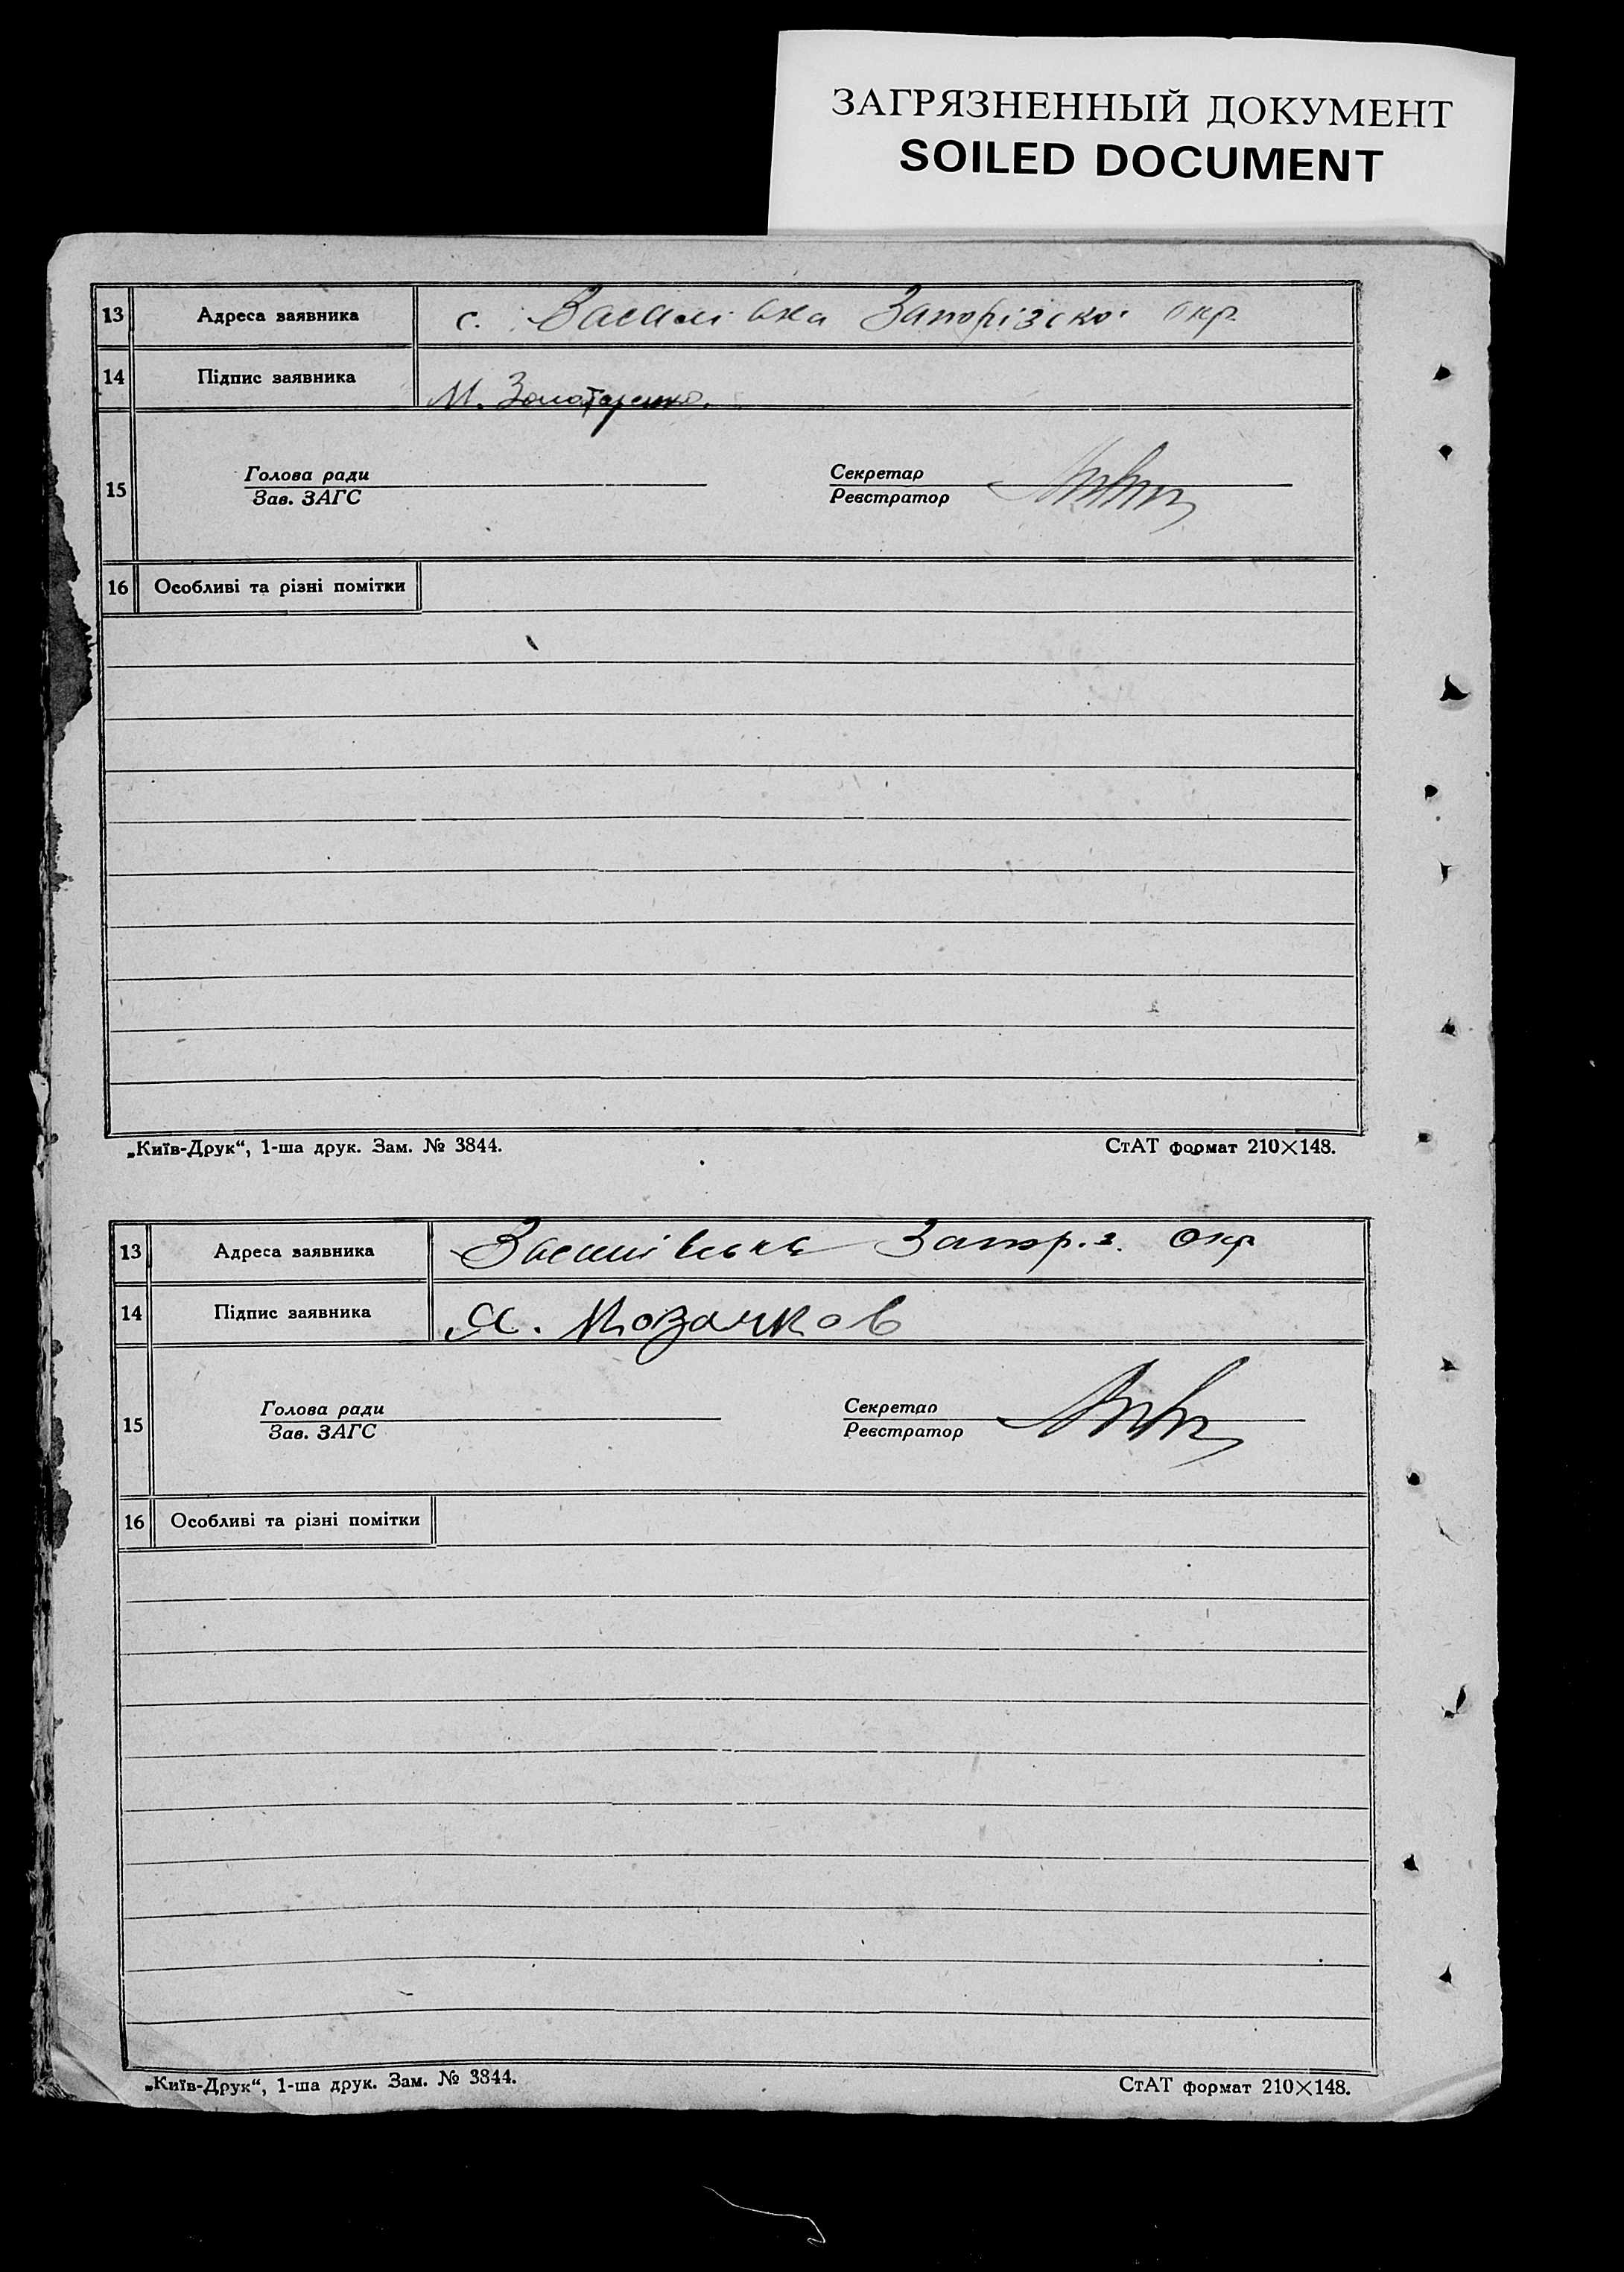 ЗАГРЯЗНЕННЫЙ ДОКУМЕНТ
SOILED DOCUMENT
13 Адреса заявника с. Василівка Запорізскої окр.
14 Підпис заявника М. Золотаренко.
15 Голова ради Секретар
Зав. ЗАГС Реєстратор
16 Особливі та різні помітки
„Київ-Друк“, 1-ша друк. Зам. № 3844. СтАТ формат 210×148.
13 Адреса заявника Запор. окр
14 Підпис заявника Я. Козачков
15 Голова ради Секретар
Зав. ЗАГС Реєстратор
16 Особливі та різні помітки
„Київ-Друк“, 1-ша друк. Зам. № 3844. СтАТ формат 210×148.